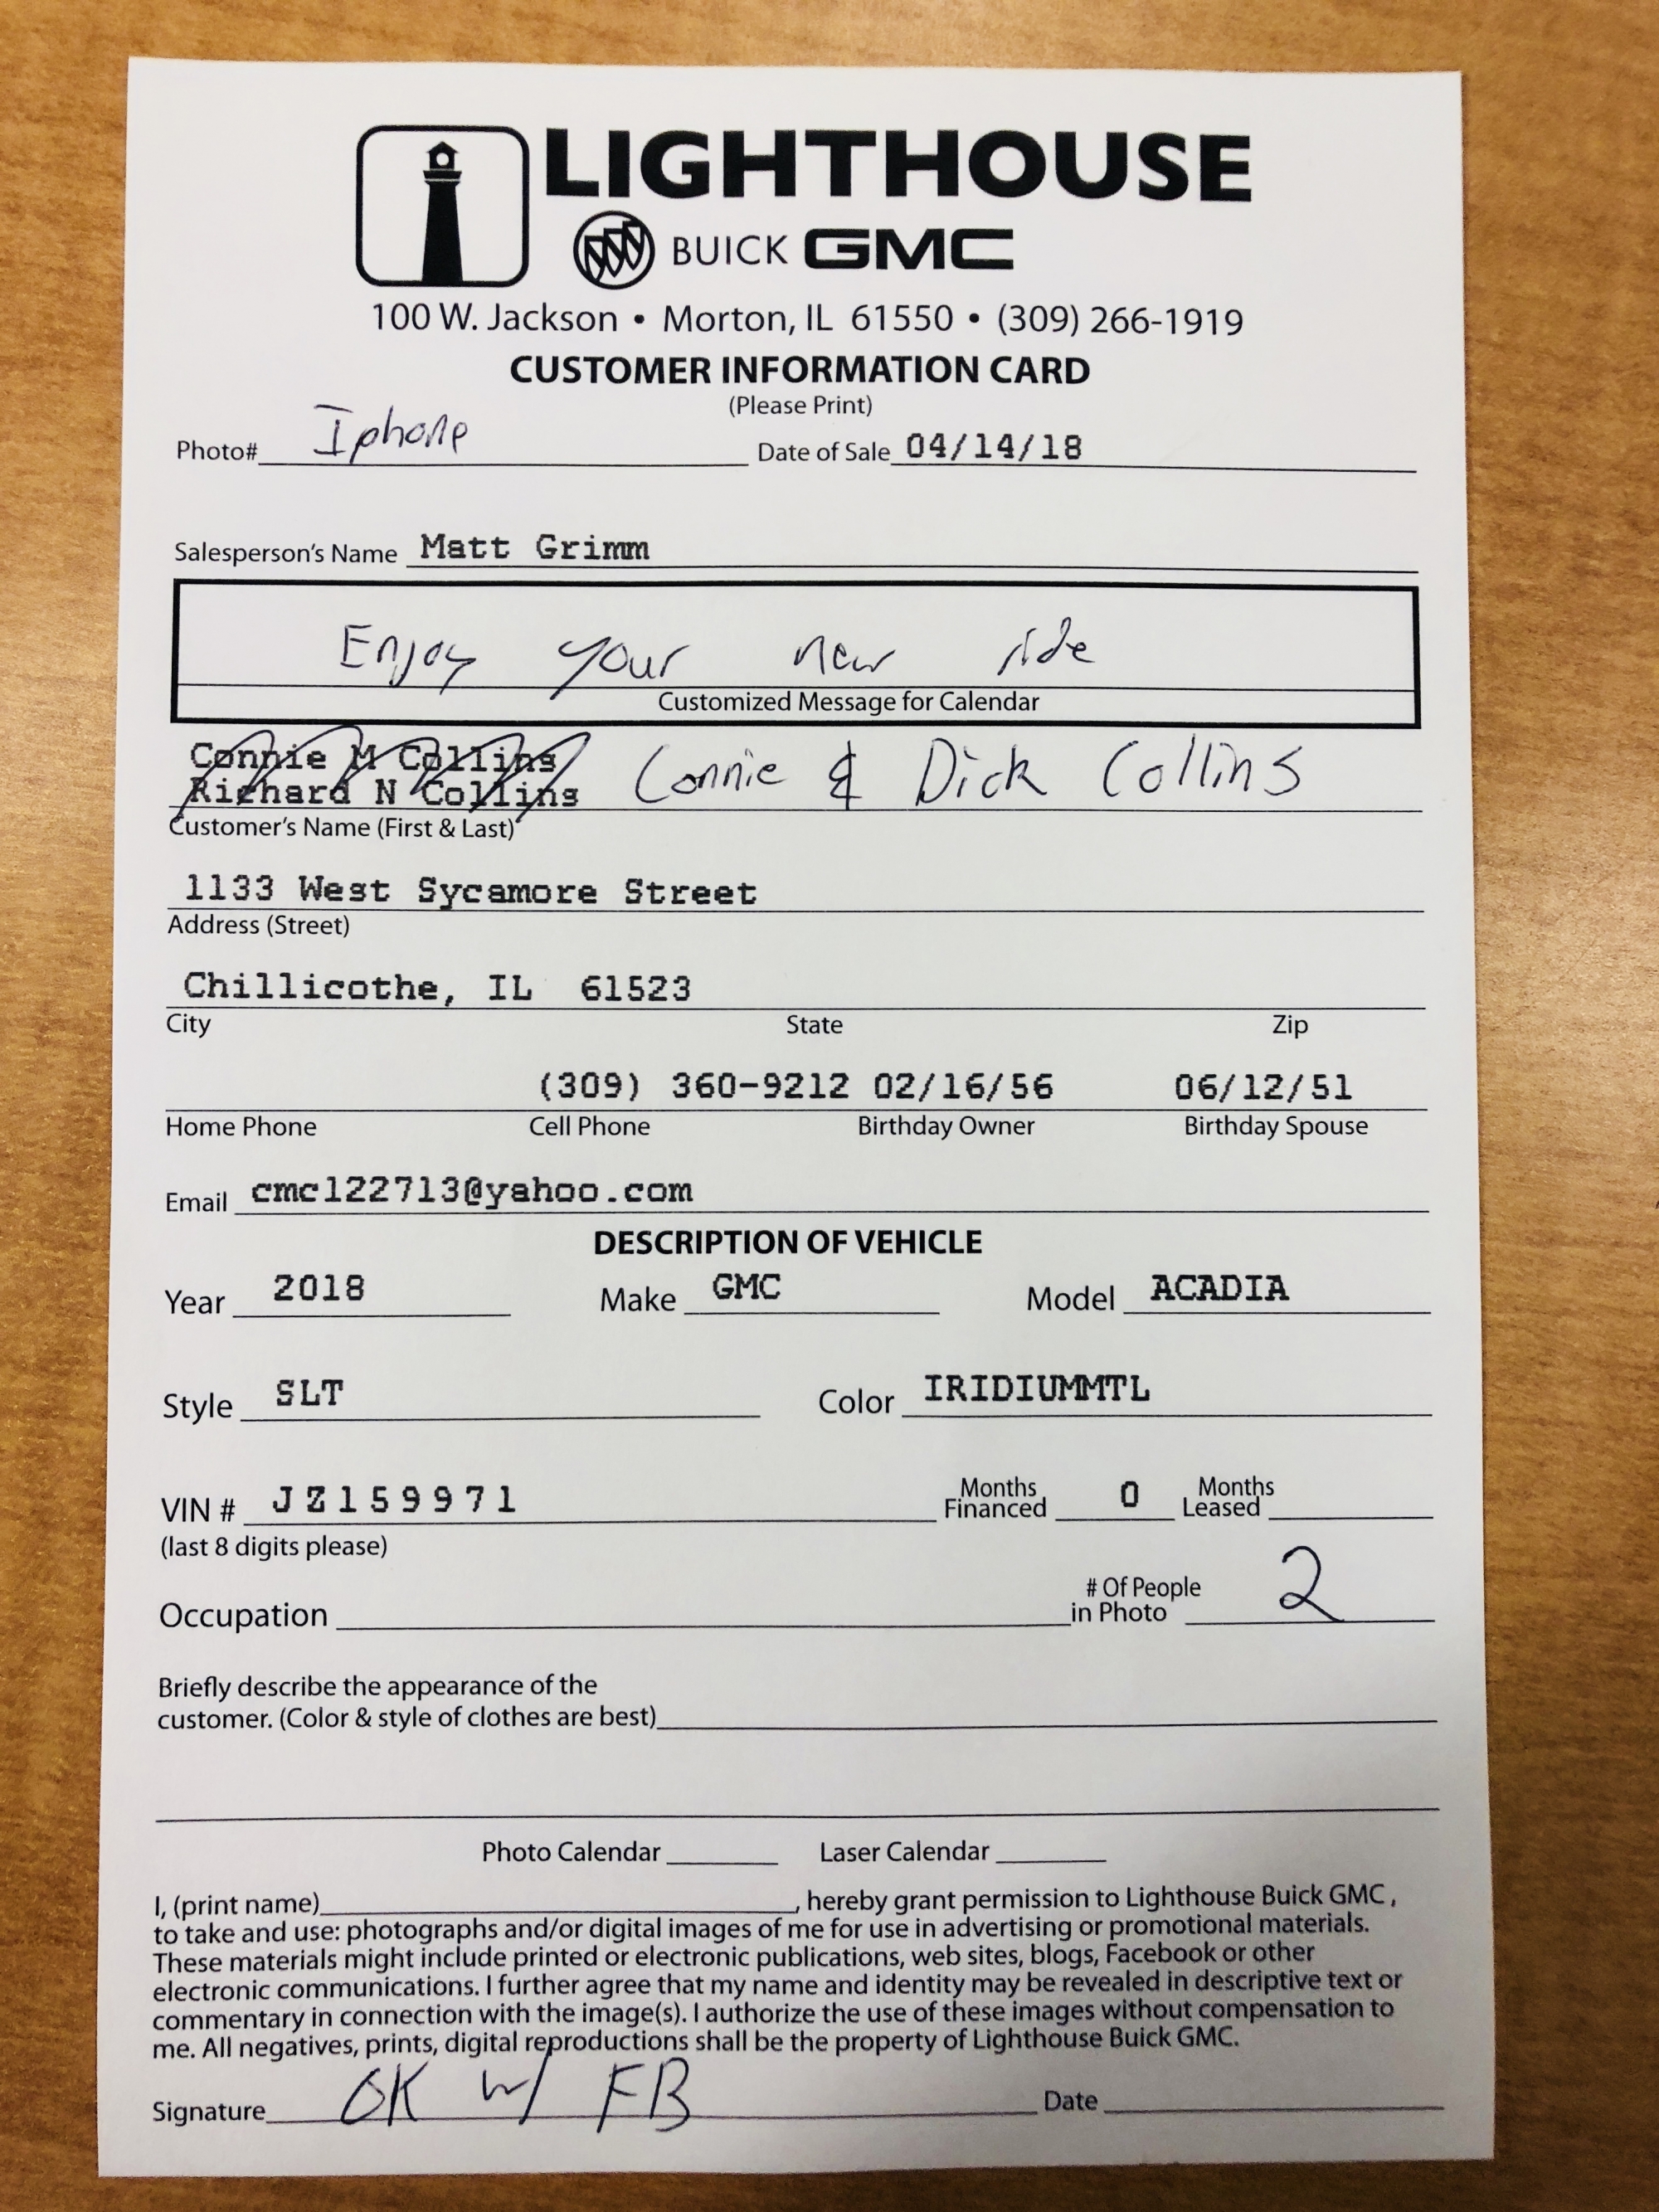 LIGHTHOUSE
BUICK GMC
100 W. Jackson • Morton, IL 61550 • (309) 266-1919
CUSTOMER INFORMATION CARD
(Please Print)
Photo# Iphone Date of Sale 04/14/18
Salesperson's Name Matt Grimm
Enjoy your new ride
Customized Message for Calendar
Connie M Collins
Richard N Collins Connie & Dick Collins
Customer's Name (First & Last)
1133 West Sycamore Street
Address (Street)
Chillicothe, IL 61523
City State Zip
(309) 360-9212 02/16/56 06/12/51
Home Phone Cell Phone Birthday Owner Birthday Spouse
Email cmc122713@yahoo.com
DESCRIPTION OF VEHICLE
Year 2018 Make GMC Model ACADIA
Style SLT Color IRIDIUMMTL
VIN # JZ159971 Months Financed 0 Months Leased
(last 8 digits please)
Occupation # Of People in Photo 2
Briefly describe the appearance of the
customer. (Color & style of clothes are best)
Photo Calendar Laser Calendar
I, (print name) , hereby grant permission to Lighthouse Buick GMC,
to take and use: photographs and/or digital images of me for use in advertising or promotional materials.
These materials might include printed or electronic publications, web sites, blogs, Facebook or other
electronic communications. I further agree that my name and identity may be revealed in descriptive text or
commentary in connection with the image(s). I authorize the use of these images without compensation to
me. All negatives, prints, digital reproductions shall be the property of Lighthouse Buick GMC.
Signature OK w/ FB Date